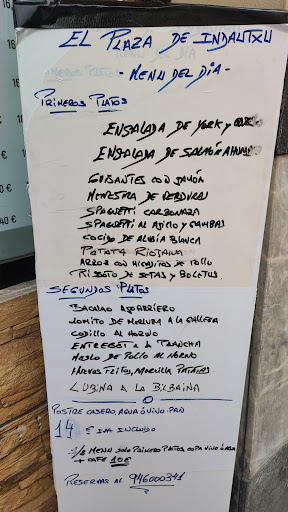 EL PLAZA DE INDAUTXU
- MENU DEL DÍA -
PRIMEROS PLATOS
ENSALADA DE YORK y
ENSALADA DE SALMÓN AHUMADO
GUISANTES CON JAMÓN
MENESTRA DE VERDURAS
SPAGHETTI CARBONARA
SPAGHETTI AL AJILLO y GAMBAS
COCIDO DE ALUBIA BLANCA
PATATA RIOJANA
ARROZ CON HIGADITOS DE POLLO
RISOTO DE SETAS y BOLETUS
SEGUNDOS PLATOS
BACALAO AJOARRIERO
LOMITO DE MERLUZA A LA GALLEGA
CODILLO AL HORNO
ENTRECOT A LA PLANCHA
MUSLO DE POLLO AL HORNO
HUEVOS FRITOS, MORCILLA PATATAS
LUBINA A LA BILBAINA
POSTRE CASERO, AGUA Ó VINO. PAN
14 € IVA INCLUIDO
1/2 MENU SOLO PRIMERO PLATOS COPA VINO Ó AGUA
+ CAFE 10€
RESERVAS AL 946000341